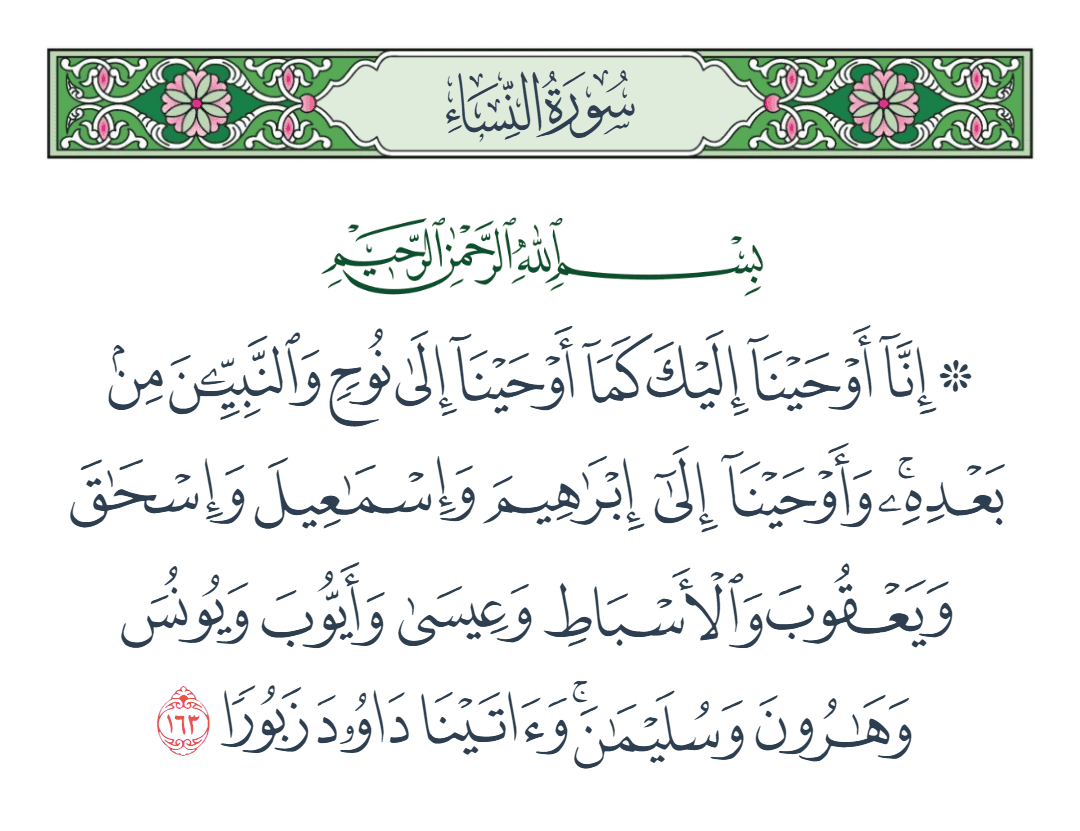 سُورَةُ النِّسَاءِ
بِسْمِ ٱللَّهِ ٱلرَّحْمَٰنِ ٱلرَّحِيمِ
۞ إِنَّآ أَوْحَيْنَآ إِلَيْكَ كَمَآ أَوْحَيْنَآ إِلَىٰ نُوحٍ وَٱلنَّبِيِّـۧنَ مِنۢ
بَعْدِهِۦۚ وَأَوْحَيْنَآ إِلَىٰٓ إِبْرَٰهِيمَ وَإِسْمَٰعِيلَ وَإِسْحَٰقَ
وَيَعْقُوبَ وَٱلْأَسْبَاطِ وَعِيسَىٰ وَأَيُّوبَ وَيُونُسَ
وَهَٰرُونَ وَسُلَيْمَٰنَۚ وَءَاتَيْنَا دَاوُۥدَ زَبُورًا ١٦٣